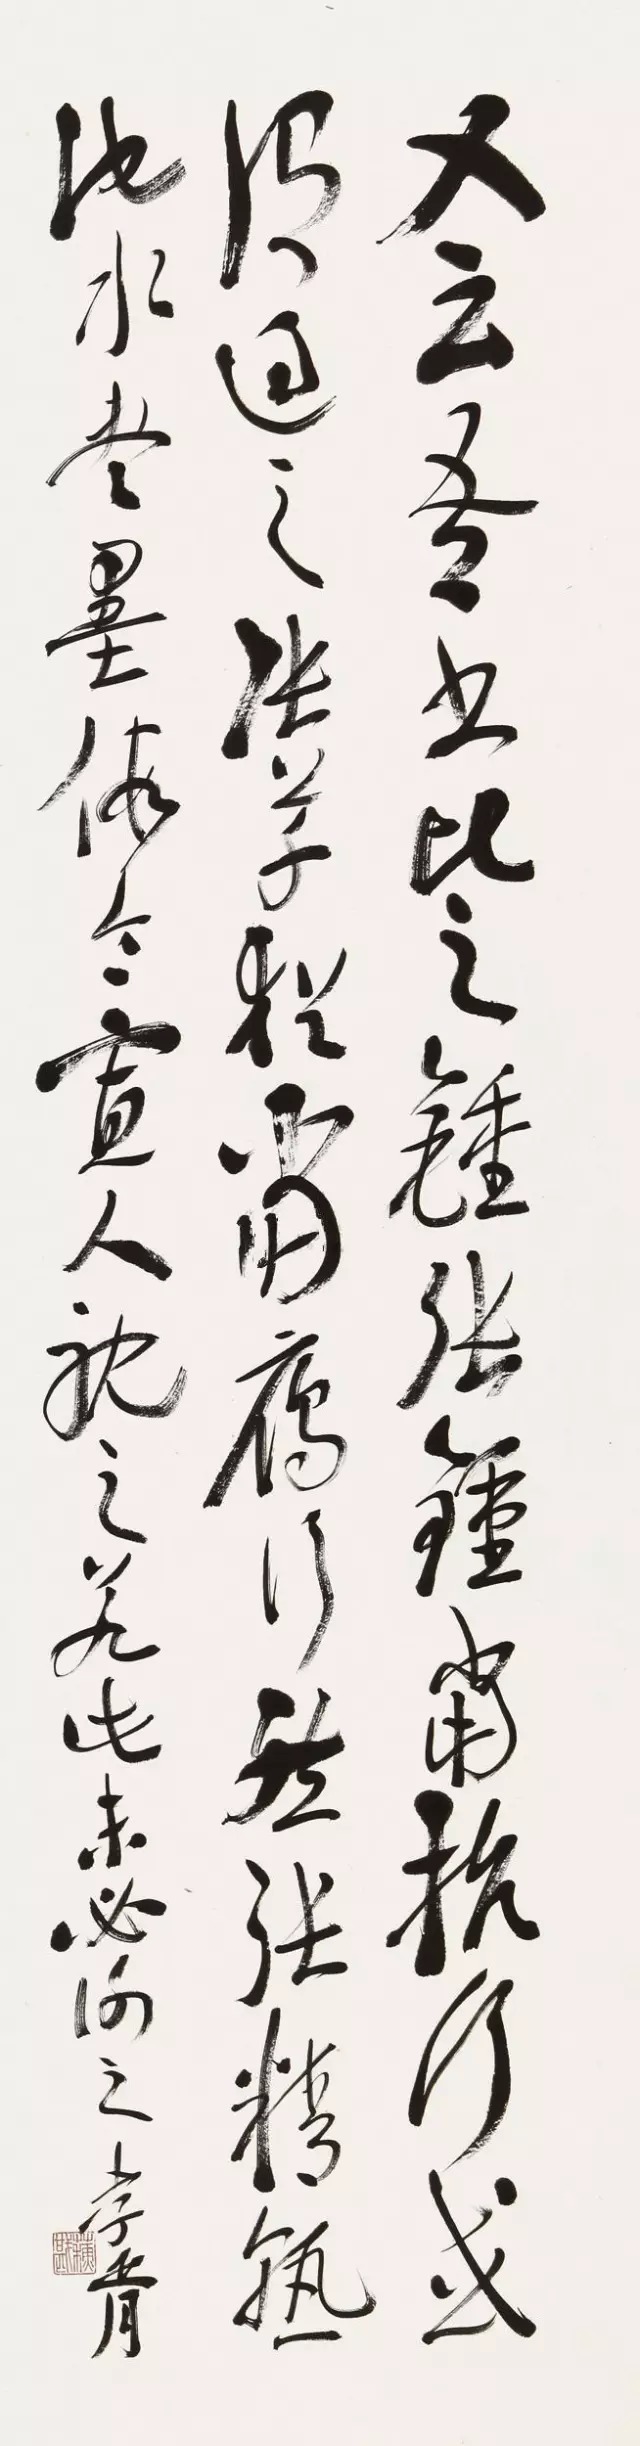 又云吾書比之鍾張鍾當抗行或
謂過之張草猶當鴈行然張精熟
池水盡墨假令寡人耽之若此未必謝之 孝胥